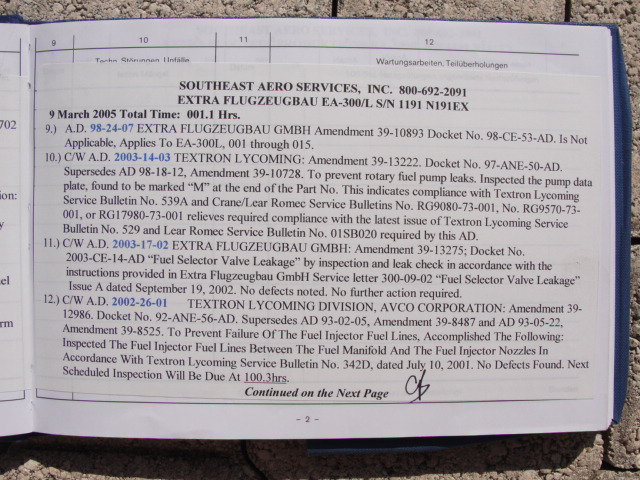 9 10 11 12
Techn. Störungen, Unfälle Wartungsarbeiten, Teilüberholungen
SOUTHEAST AERO SERVICES, INC. 800-692-2091
EXTRA FLUGZEUGBAU EA-300/L S/N 1191 N191EX
9 March 2005 Total Time: 001.1 Hrs.
9.) A.D. 98-24-07 EXTRA FLUGZEUGBAU GMBH Amendment 39-10893 Docket No. 98-CE-53-AD. Is Not
Applicable, Applies To EA-300L, 001 through 015.
10.) C/W A.D. 2003-14-03 TEXTRON LYCOMING: Amendment 39-13222. Docket No. 97-ANE-50-AD.
Supersedes AD 98-18-12, Amendment 39-10728. To prevent rotary fuel pump leaks. Inspected the pump data
plate, found to be marked “M” at the end of the Part No. This indicates compliance with Textron Lycoming
Service Bulletin No. 539A and Crane/Lear Romec Service Bulletins No. RG9080-73-001, No. RG9570-73-
001, or RG17980-73-001 relieves required compliance with the latest issue of Textron Lycoming Service
Bulletin No. 529 and Lear Romec Service Bulletin No. 01SB020 required by this AD.
11.) C/W A.D. 2003-17-02 EXTRA FLUGZEUGBAU GMBH: Amendment 39-13275; Docket No.
2003-CE-14-AD “Fuel Selector Valve Leakage” by inspection and leak check in accordance with the
instructions provided in Extra Flugzeugbau GmbH Service letter 300-09-02 “Fuel Selector Valve Leakage”
Issue A dated September 19, 2002. No defects noted. No further action required.
12.) C/W A.D. 2002-26-01 TEXTRON LYCOMING DIVISION, AVCO CORPORATION: Amendment 39-
12986. Docket No. 92-ANE-56-AD. Supersedes AD 93-02-05, Amendment 39-8487 and AD 93-05-22,
Amendment 39-8525. To Prevent Failure Of The Fuel Injector Fuel Lines, Accomplished The Following:
Inspected The Fuel Injector Fuel Lines Between The Fuel Manifold And The Fuel Injector Nozzles In
Accordance With Textron Lycoming Service Bulletin No. 342D, dated July 10, 2001. No Defects Found. Next
Scheduled Inspection Will Be Due At 100.3hrs.
Continued on the Next Page
- 2 -
702
ion: